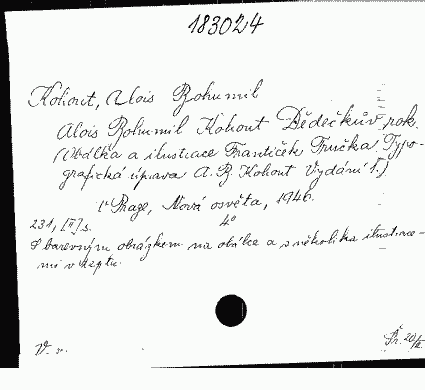 183024
Kohout, Alois Bohumil
Alois Bohumil Kohout Dědečkův rok.
(Obálka a ilustrace František Fručka Typo-
grafická úprava A. B. Kohout Vydání 1.)
V Praze, Nová osvěta, 1946.
231, [II] s. 4°
S barevným obrázkem na obálce a s několika ilustrace-
mi v textu.
V. v.
Př. 20/